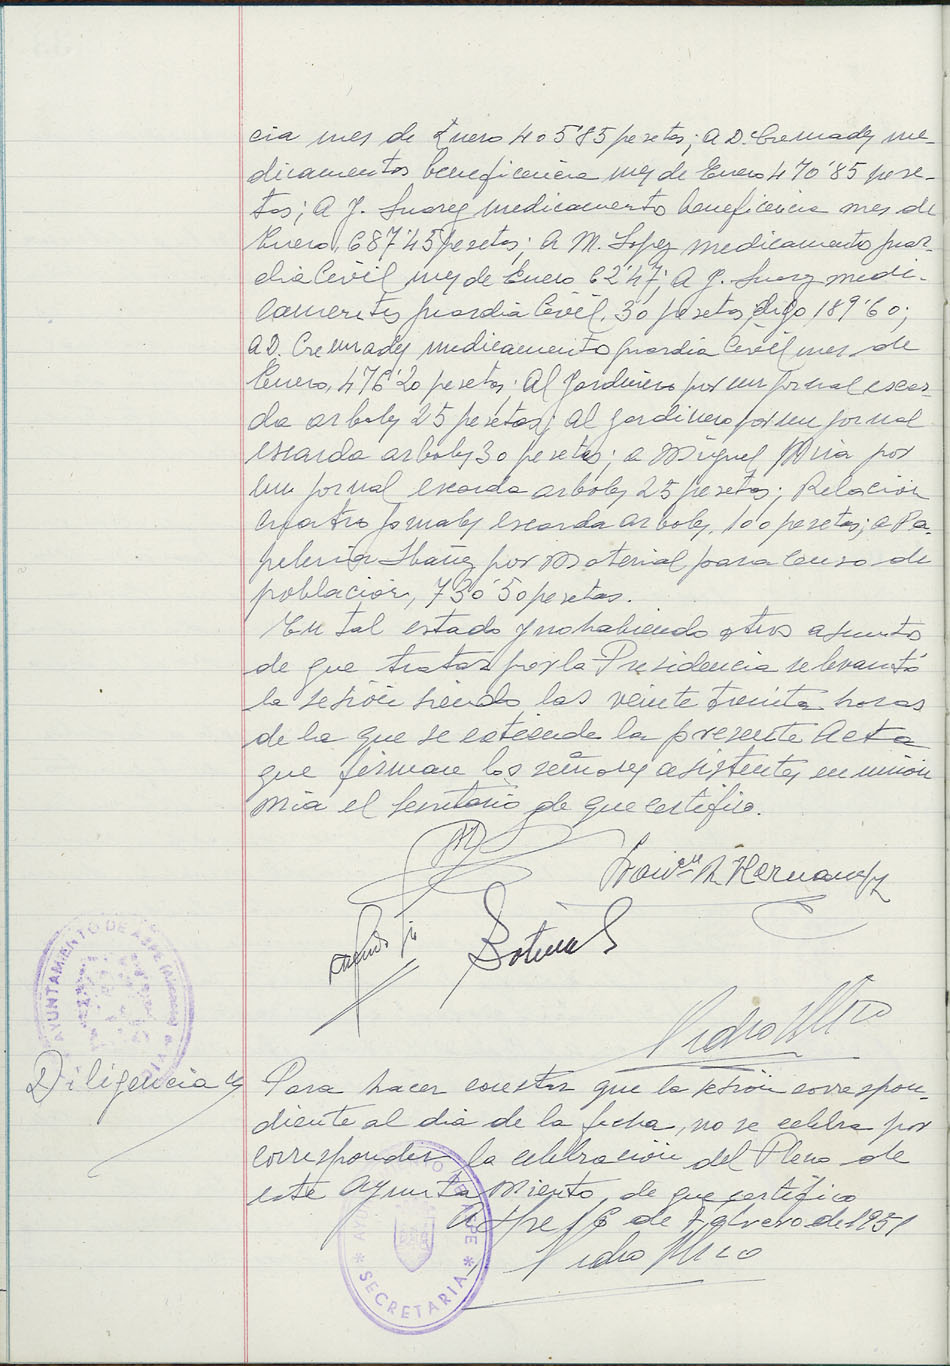 cia mes de Enero 405'85 pesetas; a D. Cremades me-
dicamentos beneficencia mes de Enero 470'85 pese-
tas; A J. Suarez medicamento beneficencia mes de
Enero, 687'45 pesetas; A M. Lopez medicamento guar-
dia Civil mes de Enero 62'47; A J. Suarez medi-
camentos guardia Civil, 30 pesetas, digo 189'60;
a D. Cremades medicamento guardia Civil mes de
Enero, 476'20 pesetas; Al Jardinero por un jornal escar-
da arboles 25 pesetas; al jardinero por un jornal
escarda arboles 30 pesetas; a Miguel Mira por
un jornal escarda arboles 25 pesetas; Relacion
cuatro jornales escarda arboles, 100 pesetas; a Pa-
peleria Ibañez por Material para Censo de
poblacion, 730'50 pesetas.
En tal estado y no habiendo otros asuntos
de que tratar por la Presidencia se levantó
la sesión siendo las veinte treinta horas
de la que se extiende la presente Acta
que firman los señores asistentes en union
mia el Secretario de que certifico.
Hernandez
Botella
Pedro Mico
AYUNTAMIENTO DE ASPE (Alicante)
Diligencia
Para hacer constar que la sesión correspon-
diente al dia de la fecha, no se celebra por
corresponder la celebración del Pleno de
este Ayuntamiento, de que certifico
Aspe 16 de Febrero de 1951
Pedro Mico
AYUNTAMIENTO DE ASPE * SECRETARIA *